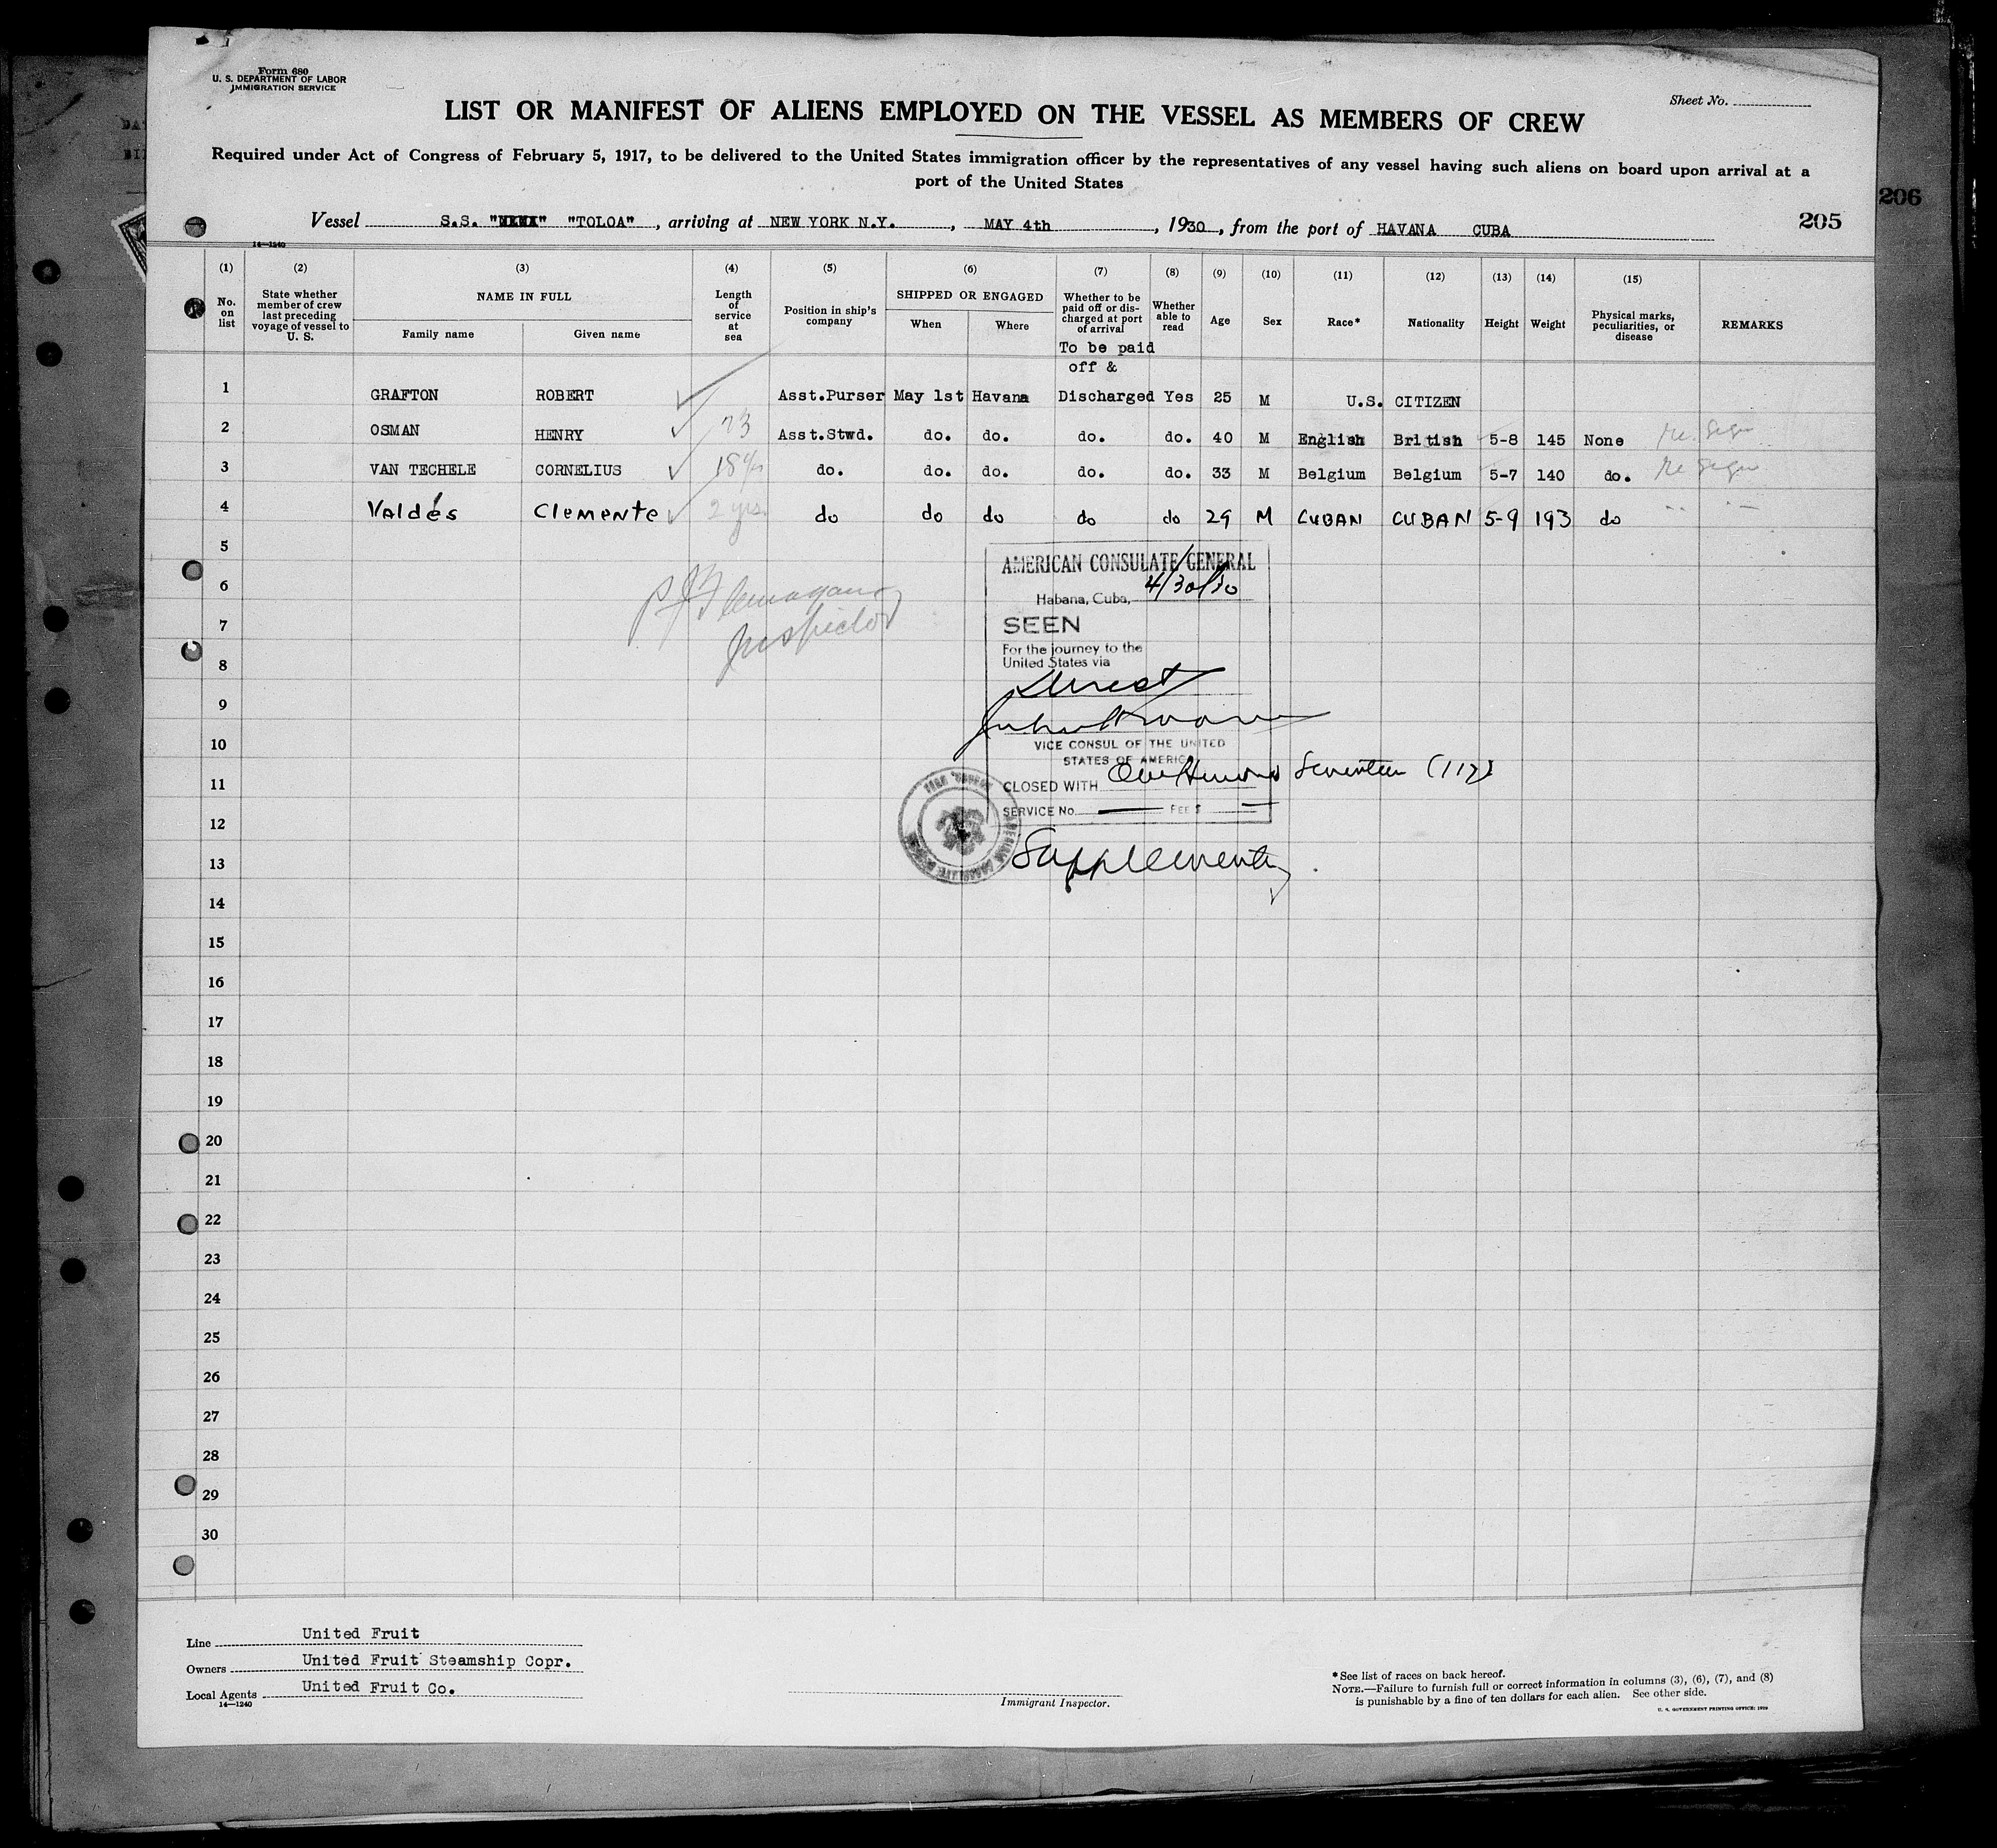 Form 680
U. S. DEPARTMENT OF LABOR
IMMIGRATION SERVICE
Sheet No.
LIST OR MANIFEST OF ALIENS EMPLOYED ON THE VESSEL AS MEMBERS OF CREW
Required under Act of Congress of February 5, 1917, to be delivered to the United States immigration officer by the representatives of any vessel having such aliens on board upon arrival at a
port of the United States
206
205
Vessel S.S. "TOLOA", arriving at NEW YORK N.Y., MAY 4th, 1930, from the port of HAVANA CUBA
14—1240
(1) (2) (3) (4) (5) (6) (7) (8) (9) (10) (11) (12) (13) (14) (15)
No. on list
State whether member of crew last preceding voyage of vessel to U. S.
NAME IN FULL
Family name
Given name
Length of service at sea
Position in ship's company
SHIPPED OR ENGAGED
When
Where
Whether to be paid off or discharged at port of arrival
Whether able to read
Age
Sex
Race*
Nationality
Height
Weight
Physical marks, peculiarities, or disease
REMARKS
To be paid
off &
1 GRAFTON ROBERT Asst.Purser May 1st Havana Discharged Yes 25 M U.S. CITIZEN
2 OSMAN HENRY 23 Asst.Stwd. do. do. do. do. 40 M English British 5-8 145 None
3 VAN TECHELE CORNELIUS do. do. do. do. do. 33 M Belgium Belgium 5-7 140 do.
4 Valdés Clemente 2 yrs. do do do do do 29 M CUBAN CUBAN 5-9 193 do
5
6
7
8
9
10
11
12
13
14
15
16
17
18
19
20
21
22
23
24
25
26
27
28
29
30
Inspector
AMERICAN CONSULATE GENERAL
Habana, Cuba, 4/30/30
SEEN
For the journey to the
United States via
Direct
VICE CONSUL OF THE UNITED
STATES OF AMERICA
CLOSED WITH One Hundred Seventeen (117)
SERVICE No. FEE $
Supplementary
Line United Fruit
Owners United Fruit Steamship Copr.
Local Agents United Fruit Co.
14—1240
Immigrant Inspector.
*See list of races on back hereof.
NOTE.—Failure to furnish full or correct information in columns (3), (6), (7), and (8)
is punishable by a fine of ten dollars for each alien. See other side.
U. S. GOVERNMENT PRINTING OFFICE: 1929